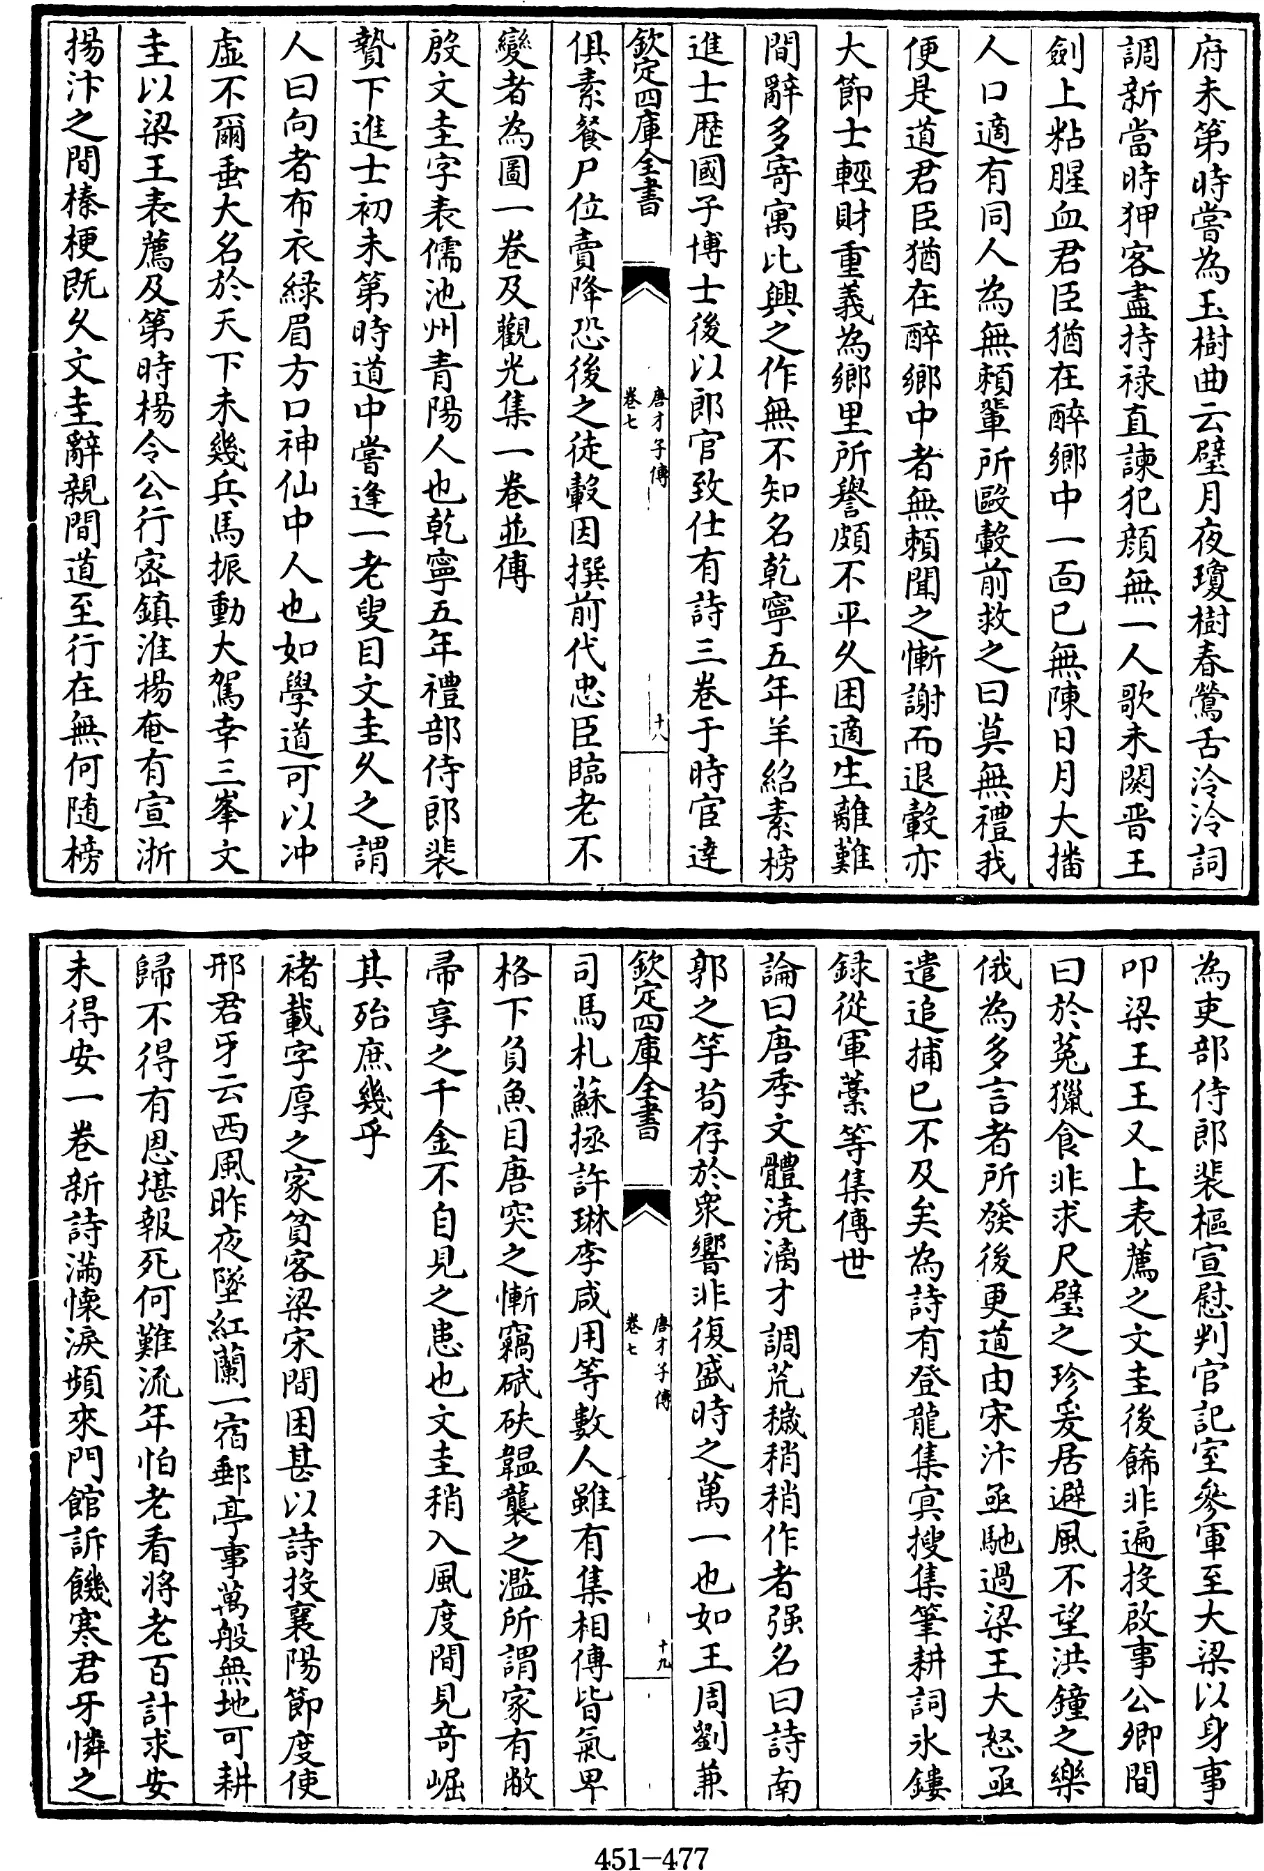 府未第時嘗為玉樹曲云璧月夜瓊樹春鶯舌泠泠詞
調新當時狎客盡持禄直諫犯顔無一人歌未闋晋王
劍上粘腥血君臣猶在醉鄉中一靣已無陳日月大播
人口適有同人為無頼輩所毆轂前救之曰莫無禮我
便是道君臣猶在醉鄉中者無頼聞之慚謝而退轂亦
大節士輕財重義為鄉里所譽頗不平乆困適生離難
間辭多寄寓比興之作無不知名乾寧五年羊紹素榜
進士歴國子博士後以郎官致仕有詩三卷于時宦達
欽定四庫全書
唐才子傳
卷七
十八
俱素餐尸位賣降恐後之徒轂因撰前代忠臣臨老不
變者為圖一卷及觀光集一卷並傳
殷文圭字表儒池州青陽人也乾寧五年禮部侍郎裴
贄下進士初未第時道中嘗逢一老叟目文圭乆之謂
人曰向者布衣緑眉方口神仙中人也如學道可以冲
虛不爾垂大名於天下未幾兵馬振動大駕幸三峯文
圭以梁王表薦及第時楊令公行密鎮淮楊奄有宣浙
揚汴之間榛梗既乆文圭辭親間道至行在無何随榜
為吏部侍郎裴樞宣慰判官記室參軍至大梁以身事
叩梁王王又上表薦之文圭後餙非遍投啟事公卿間
曰於菟獵食非求尺璧之珍爰居避風不望洪鐘之樂
俄為多言者所發後更道由宋汴亟馳過梁王大怒亟
遣追捕已不及矣為詩有登龍集㝠搜集筆耕詞氷鏤
録從軍藁等集傳世
論曰唐季文體澆漓才調荒穢稍稍作者强名曰詩南
郭之竽茍存於衆響非復盛時之萬一也如王周劉兼
欽定四庫全書
唐才子傳
卷七
十九
司馬札蘇拯許琳李咸用等數人雖有集相傳皆氣卑
格下負魚目唐突之慚竊碔砆韞襲之濫所謂家有敝
帚享之千金不自見之患也文圭稍入風度間見奇崛
其殆庶幾乎
褚載字厚之家貧客梁宋間困甚以詩投襄陽節度使
邢君牙云西風昨夜墜紅蘭一宿郵亭事萬般無地可耕
歸不得有恩堪報死何難流年怕老看将老百計求安
未得安一卷新詩滿懷淚頻來門館訴饑寒君牙憐之
451-477